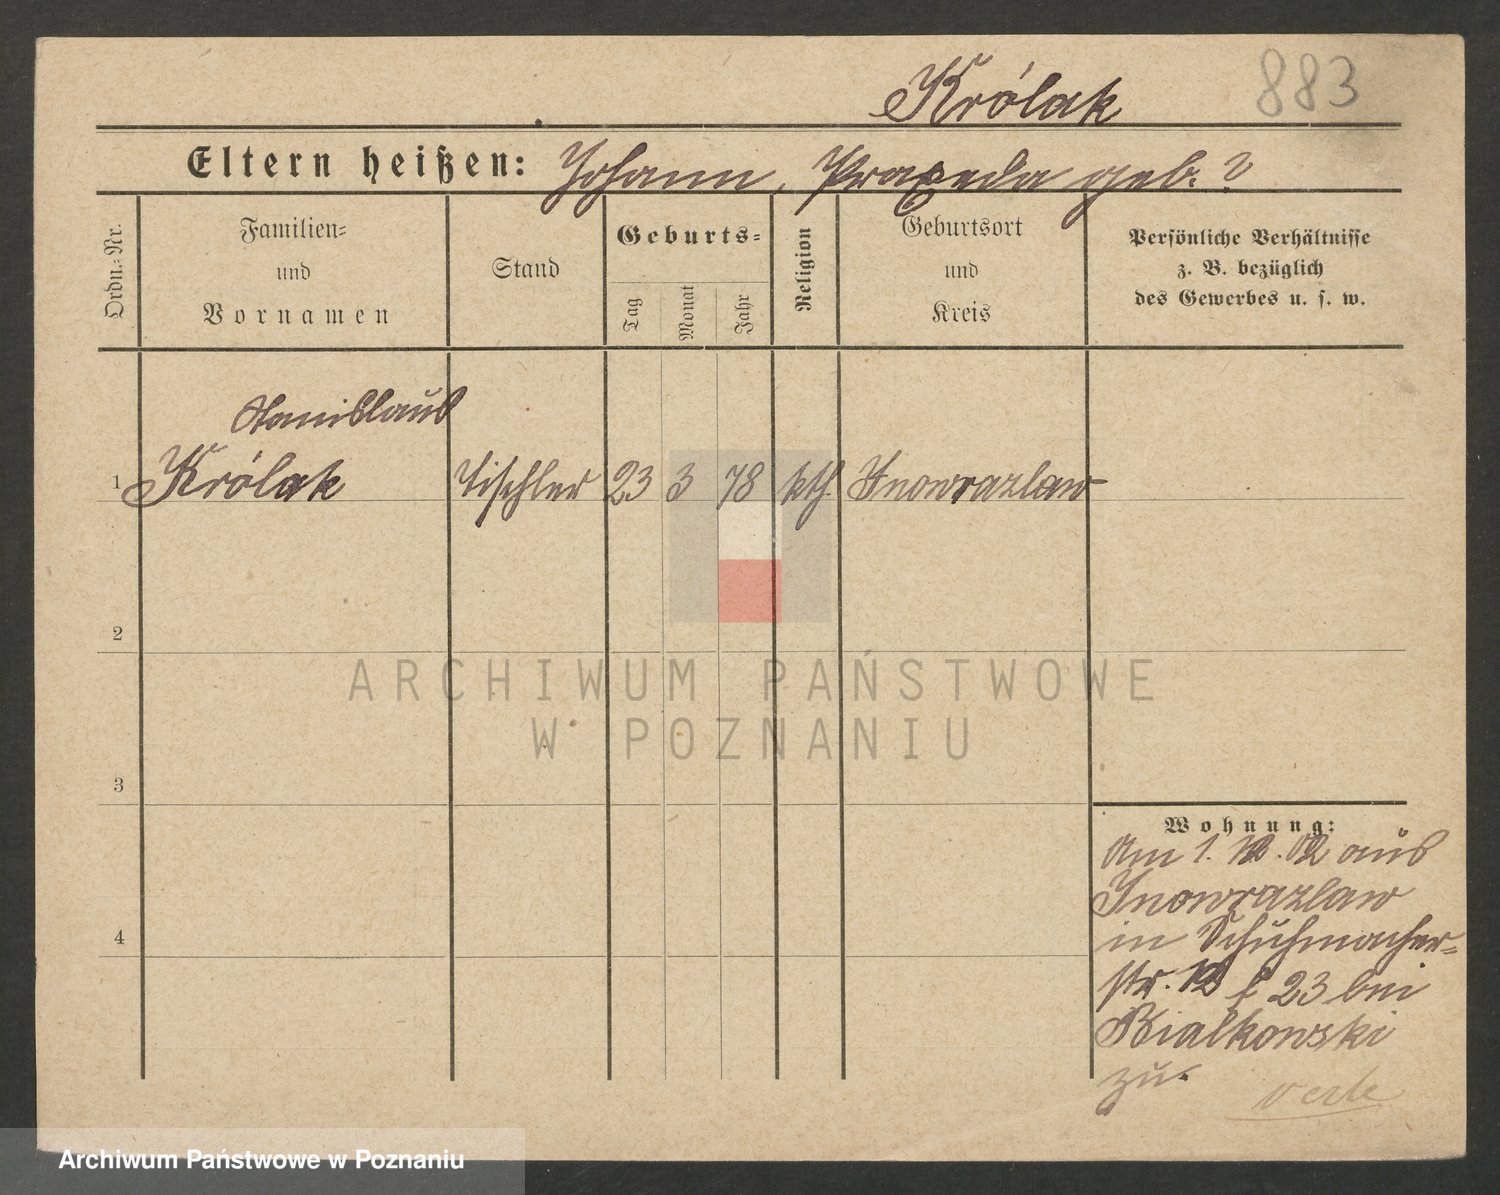 Królak 883
Eltern heißen: Johann, Praxeda geb. ?
Ordn.-Nr.
Familien-
und
Vornamen
Stand
Geburts-
Tag
Monat
Jahr
Religion
Geburtsort
und
Kreis
Persönliche Verhältnisse
z. B. bezüglich
des Gewerbes u. s. w.
Stanislaus
1 Królak Tischler 23 3 78 kth. Inowrazlaw
2
ARCHIWUM PAŃSTWOWE
W POZNANIU
3
4
Wohnung:
Am 1. 12. 02 aus
Inowrazlaw
in Schuhmacher-
str. 12 23 bei
Bialkowski
zu.
Archiwum Państwowe w Poznaniu